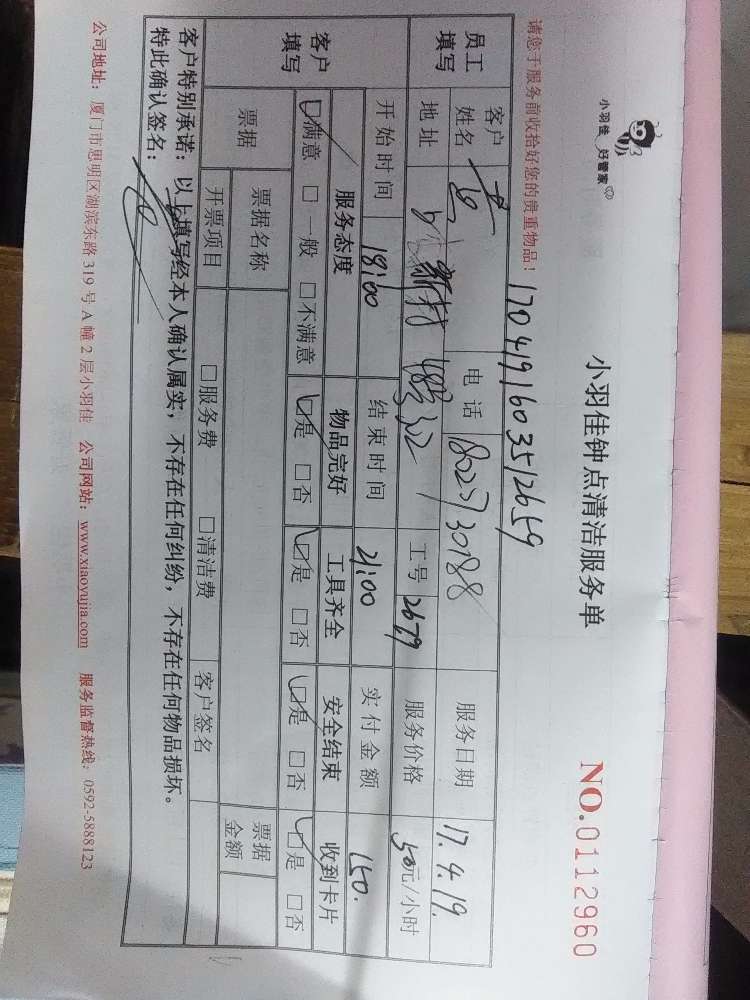 小羽佳 好管家
小羽佳钟点清洁服务单
NO.0112960
请您于服务前收拾好您的贵重物品！
1704191603512659
员工填写
客户姓名
电话
服务日期 17.4.19.
地址
工号 2679
服务价格 50元/小时
开始时间 18:00
结束时间 21:00
实付金额 150.
客户填写
服务态度 物品完好 工具齐全 安全结束 收到卡片
□满意 □一般 □不满意 □是 □否 □是 □否 □是 □否 □是 □否
票据 票据名称 票据金额
开票项目 □服务费 □清洁费 客户签名
客户特别承诺：以上填写经本人确认属实，不存在任何纠纷，不存在任何物品损坏。
特此确认签名：
公司地址：厦门市思明区湖滨东路 319 号 A 幢 2 层小羽佳 公司网站：www.xiaoyujia.com 服务监督热线：0592-5888123